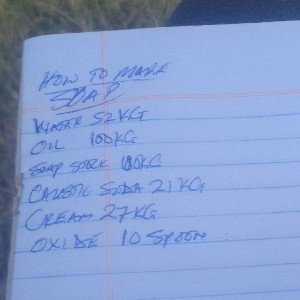 HOW TO MAKE
SOAP
WATER 52KG
OIL 100KG
SOAP STOCK 100KG
CAUSTIC SODA 21KG
CREAM 27KG
OXIDE 10 SPOON